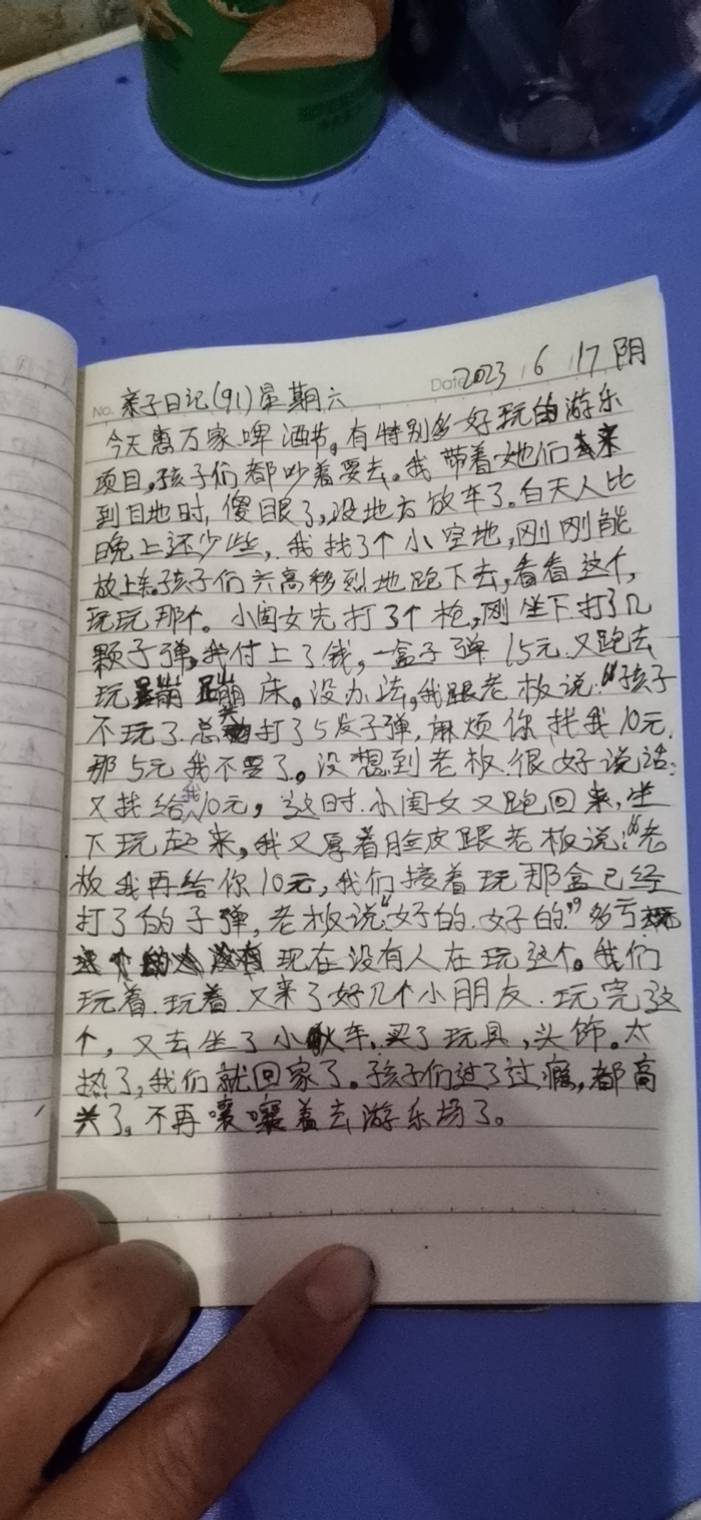 Date 2023 6 17 阴
No. 亲子日记(91)星期六
今天惠万家啤酒节,有特别多好玩的游乐
项目,孩子们都吵着要去。我带着她们来
到目地时,傻眼了,没地方放车了。白天人比
晚上还少些,我找了个小空地,刚刚能
放上车。孩子们兴高彩烈地跑下去,看看这个,
玩玩那个。小闺女先打了个枪,刚坐下打了几
颗子弹,我付上了钱,一盒子弹15元.又跑去
玩蹦蹦床。没办法,我跟老板说:“孩子
不玩了.总共打了5发子弹,麻烦你找我10元,
那5元我不要了。没想到老板很好说话;
又找给我10元,这时.小闺女又跑回来,坐
下玩起来,我又厚着脸皮跟老板说:“老
板我再给你10元,我们接着玩那盒已经
打了的子弹,老板说“好的.好的”多亏
现在没有人在玩这个。我们
玩着.玩着.又来了好几个小朋友.玩完这
个,又去坐了小火车,买了玩具,头饰。太
热了,我们就回家了。孩子们过了过瘾,都高
兴了。不再嚷嚷着去游乐场了。